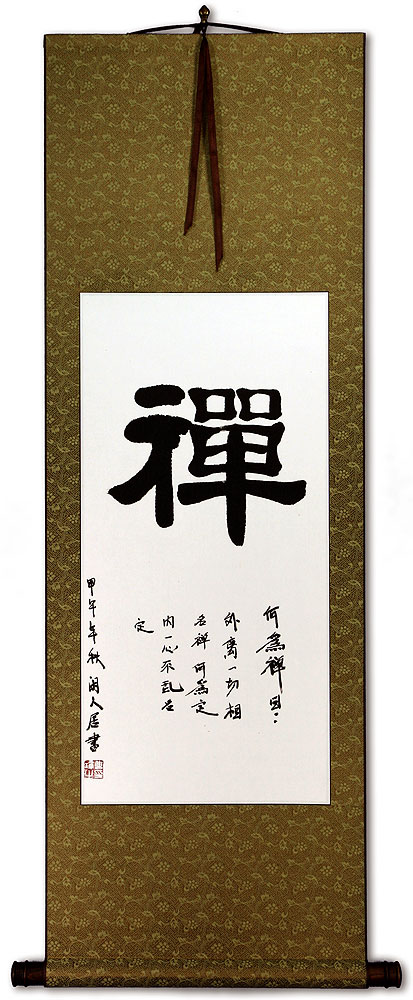 禪
何為禪曰:
外离一切相
名禪何為定
内一心不乱名
定
甲午年秋闲人居書